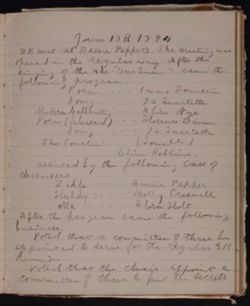 June 13th 1894
met at Bessie Pepper's. The meeting was
opened in the regular way. After the
singing of the ode "Our " came the
following program.
Poem Fountain
Song Quartette
Modern Alice Nye
Poem (selected) Florence Dunn
Song Quartette
The Courtin' (Lowell)
Alice Robbins,
assisted by the following Cast of
characters
Zekle Annie Pepper
Huldy Molly Croswell
Ma Flora Holt.
After the program came the following
business
Voted that a committee of three be
appointed to serve for the regular
Reunion.
Voted that the chair appoint a
committee of three to put the